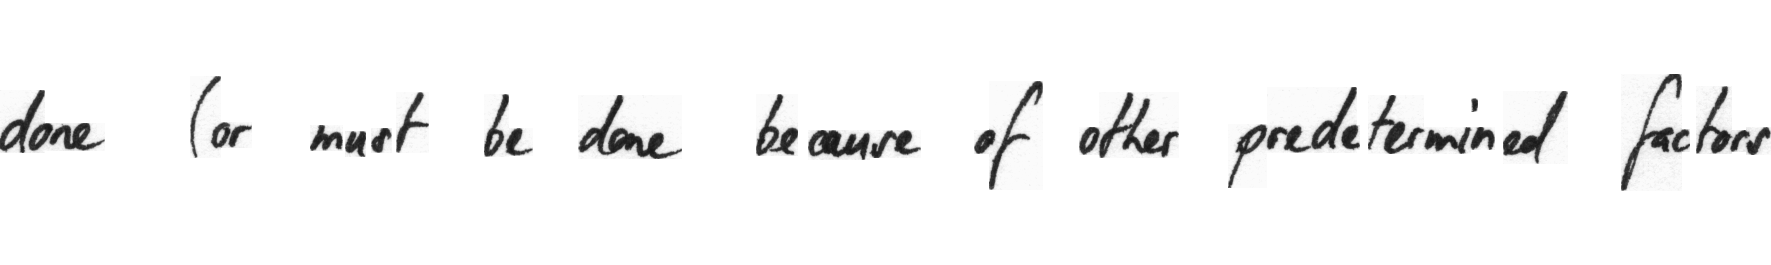 done (or must be done because of other predetermined factors